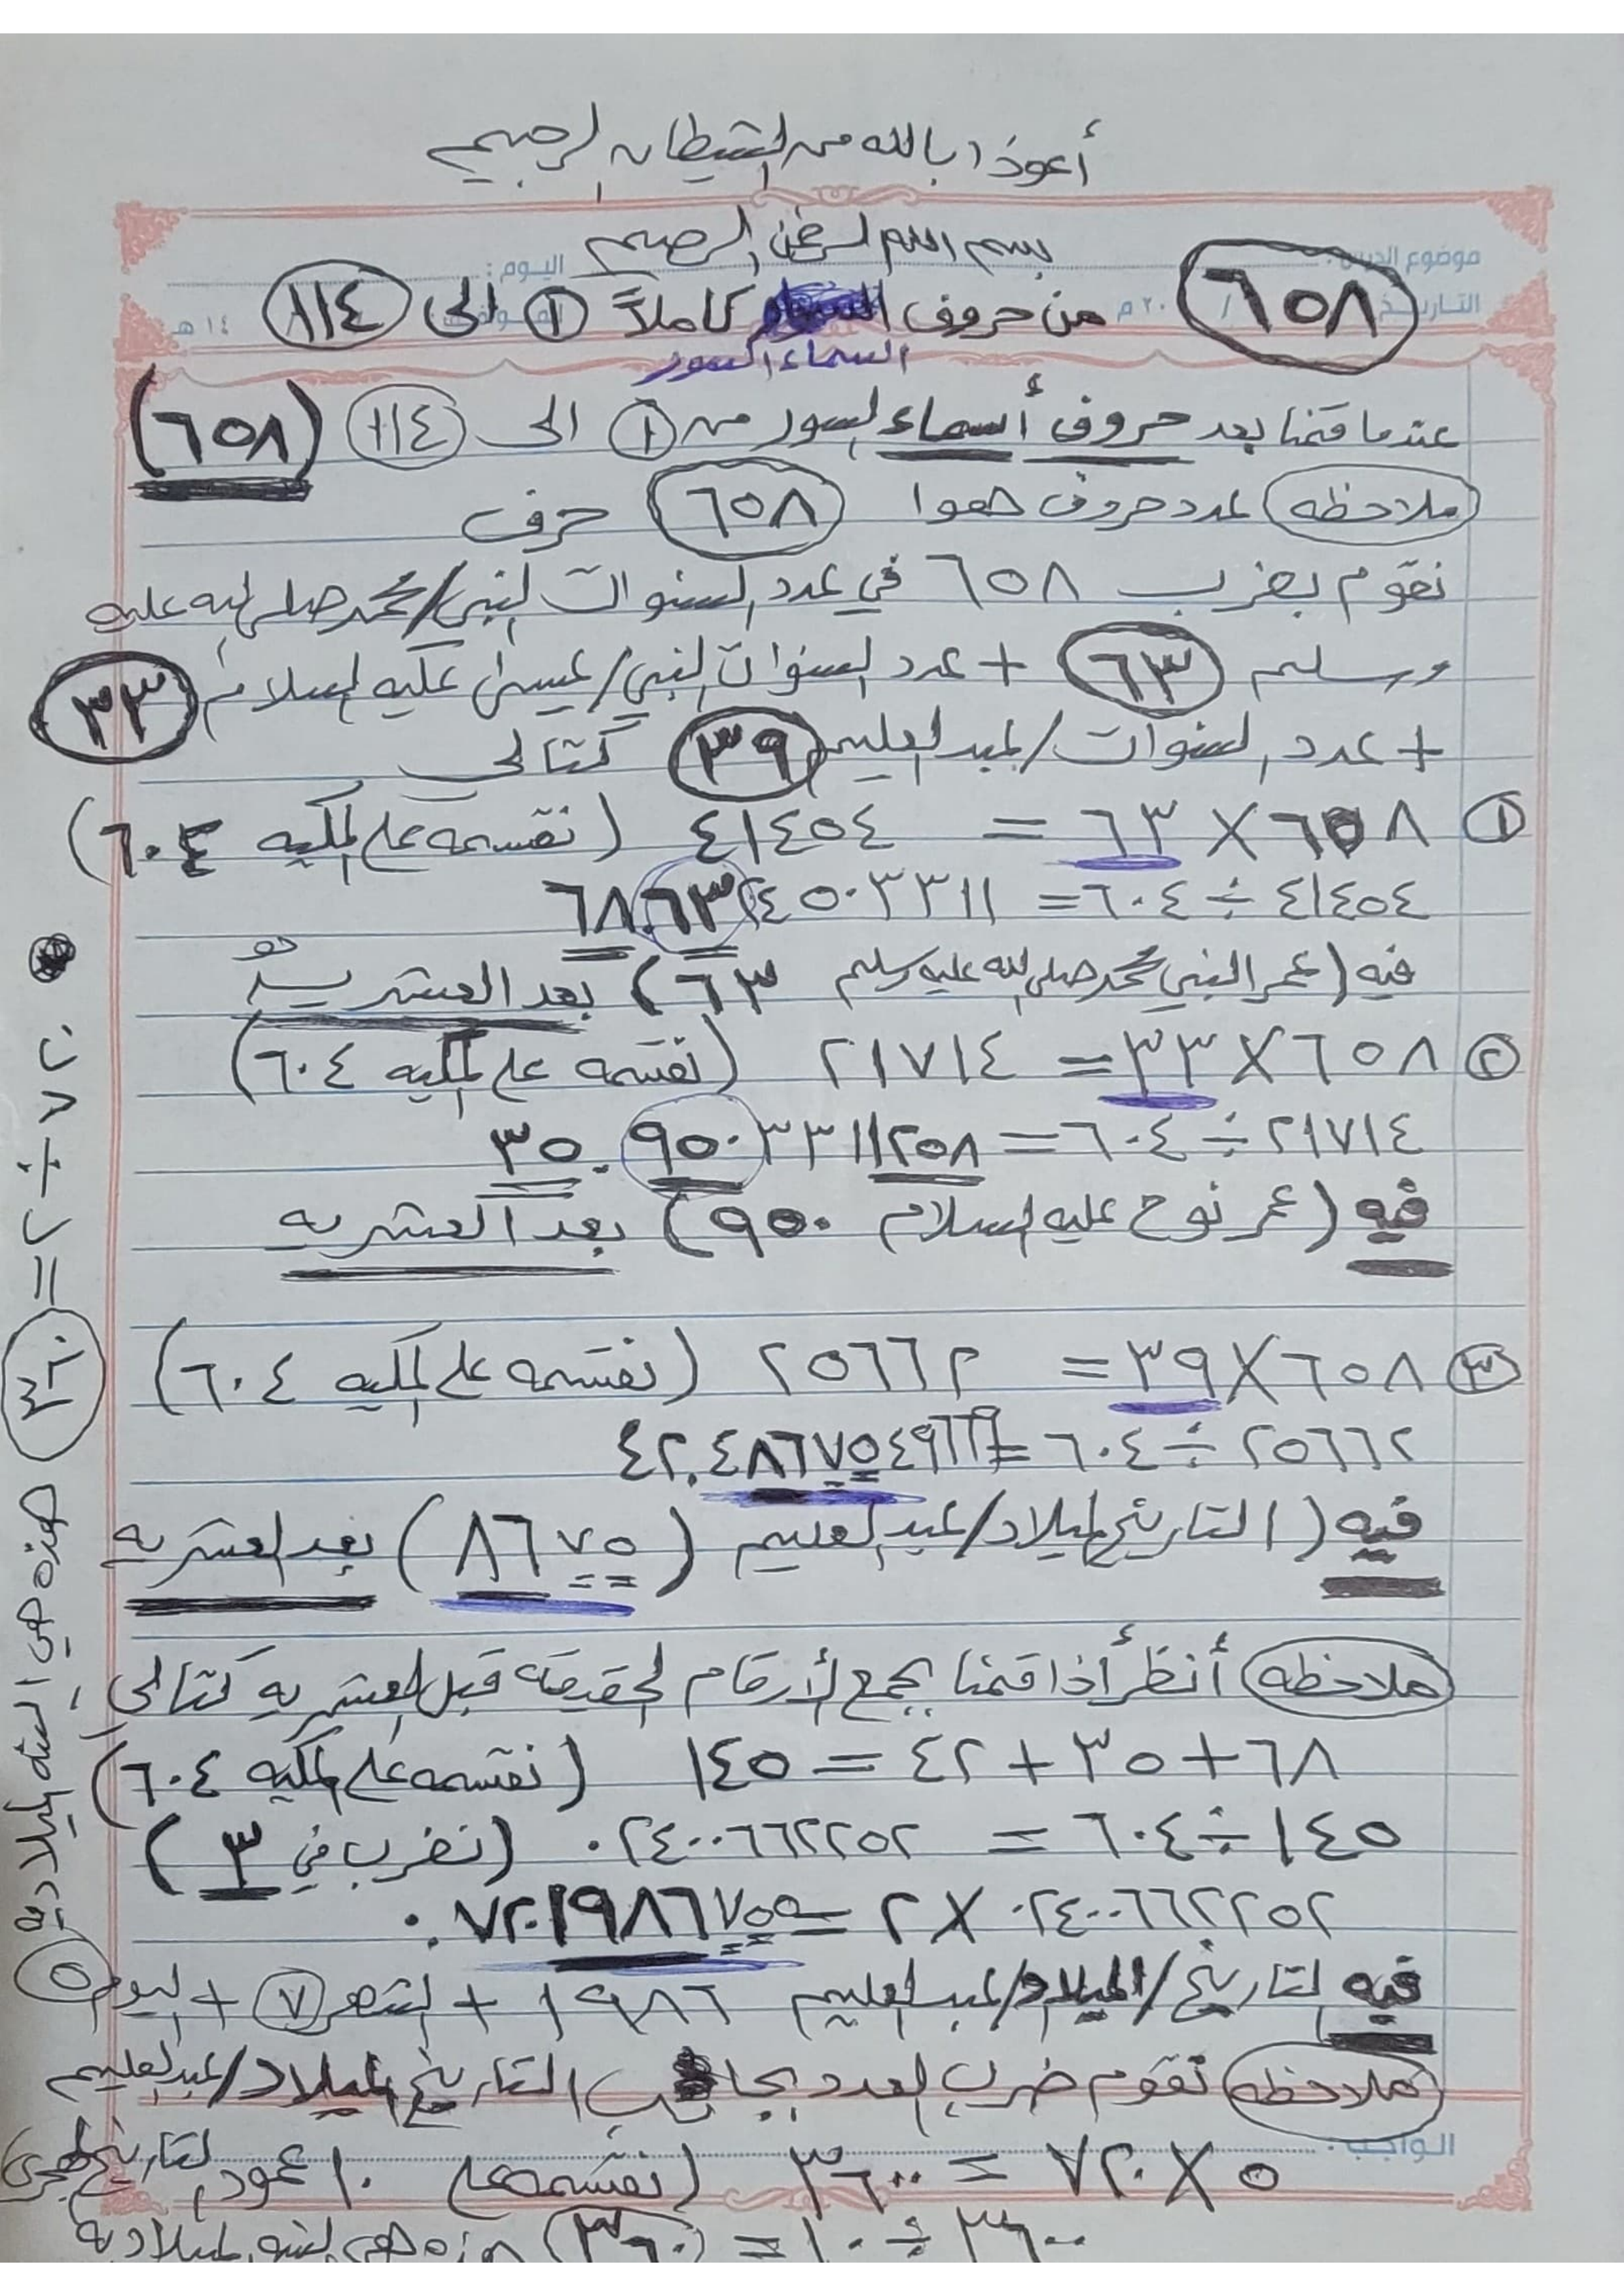 أعوذ بالله من الشيطان الرجيم
بسم الله الرحمن الرحيم
موضوع الدرس :
اليوم :
التاريخ / ٢٠ م
١٤ هـ
٦٥٨ من حروف كاملاً ١ الى ١١٤
السماء السور
عندما قمنا بعد حروف أسماء السور من ١ الى ١١٤ (٦٥٨)
ملاحظه عدد حروف هوا ٦٥٨ حرف
نقوم بضرب ٦٥٨ في عدد السنوات النبي/محمد صلى الله عليه
وسلم ٦٣ + عدد السنوات النبي/عيسى عليه السلام ٣٣
+ عدد السنوات/عبدالعليم ٣٩ كتالي
١ ٦٥٨ X ٦٣ = ٤١٤٥٤ (نقسمه على المكيه ٦٠٤)
٤١٤٥٤ ÷ ٦٠٤ = ٦٨.٦٣٢٤٥٠٣٣١١
فيه (عمر النبي محمد صلى الله عليه وسلم ٦٣) بعد العشريه
٢ ٦٥٨ X ٣٣ = ٢١٧١٤ (نقسمه على المكيه ٦٠٤)
٢١٧١٤ ÷ ٦٠٤ = ٣٥.٩٥٠٣٣١١٢٥٨
فيه (عمر نوح عليه السلام ٩٥٠) بعد العشريه
٣ ٦٥٨ X ٣٩ = ٢٥٦٦٢ (نقسمه على المكيه ٦٠٤)
٢٥٦٦٢ ÷ ٦٠٤ = ٤٢.٤٨٦٧٥٤٩٦٦٩
فيه (التاريخ الميلاد/عبدالعليم (٨٦٧٥) بعد العشريه
ملاحظه أنظر أذا قمنا بجمع الأرقام الحقيقه قبل العشريه كتالي
٦٨ + ٣٥ + ٤٢ = ١٤٥ (نقسمه على المكيه ٦٠٤)
١٤٥ ÷ ٦٠٤ = ٠.٢٤٠٠٦٦٢٢٥٢ (نضرب في ٣)
٠.٢٤٠٠٦٦٢٢٥٢ X ٣ = ٠.٧٢٠١٩٨٦٧٥٥
فيه التاريخ/الميلاد/عبدالعليم ١٩٨٦ + الشهر ٧ + اليوم ٥
ملاحظه نقوم ضرب العدد بجانب التاريخ الميلاد/عبدالعليم
الواجب :
٥ X ٧٢٠ = ٣٦٠٠ (نقسمه على ١٠ عمود التاريخ الهجري)
٣٦٠٠ ÷ ١٠ = (٣٦٠) هذه هي السنه الميلاديه
٧٢٠ ÷ ٢ = ٣٦٠ هذه هي السنه الميلاديه